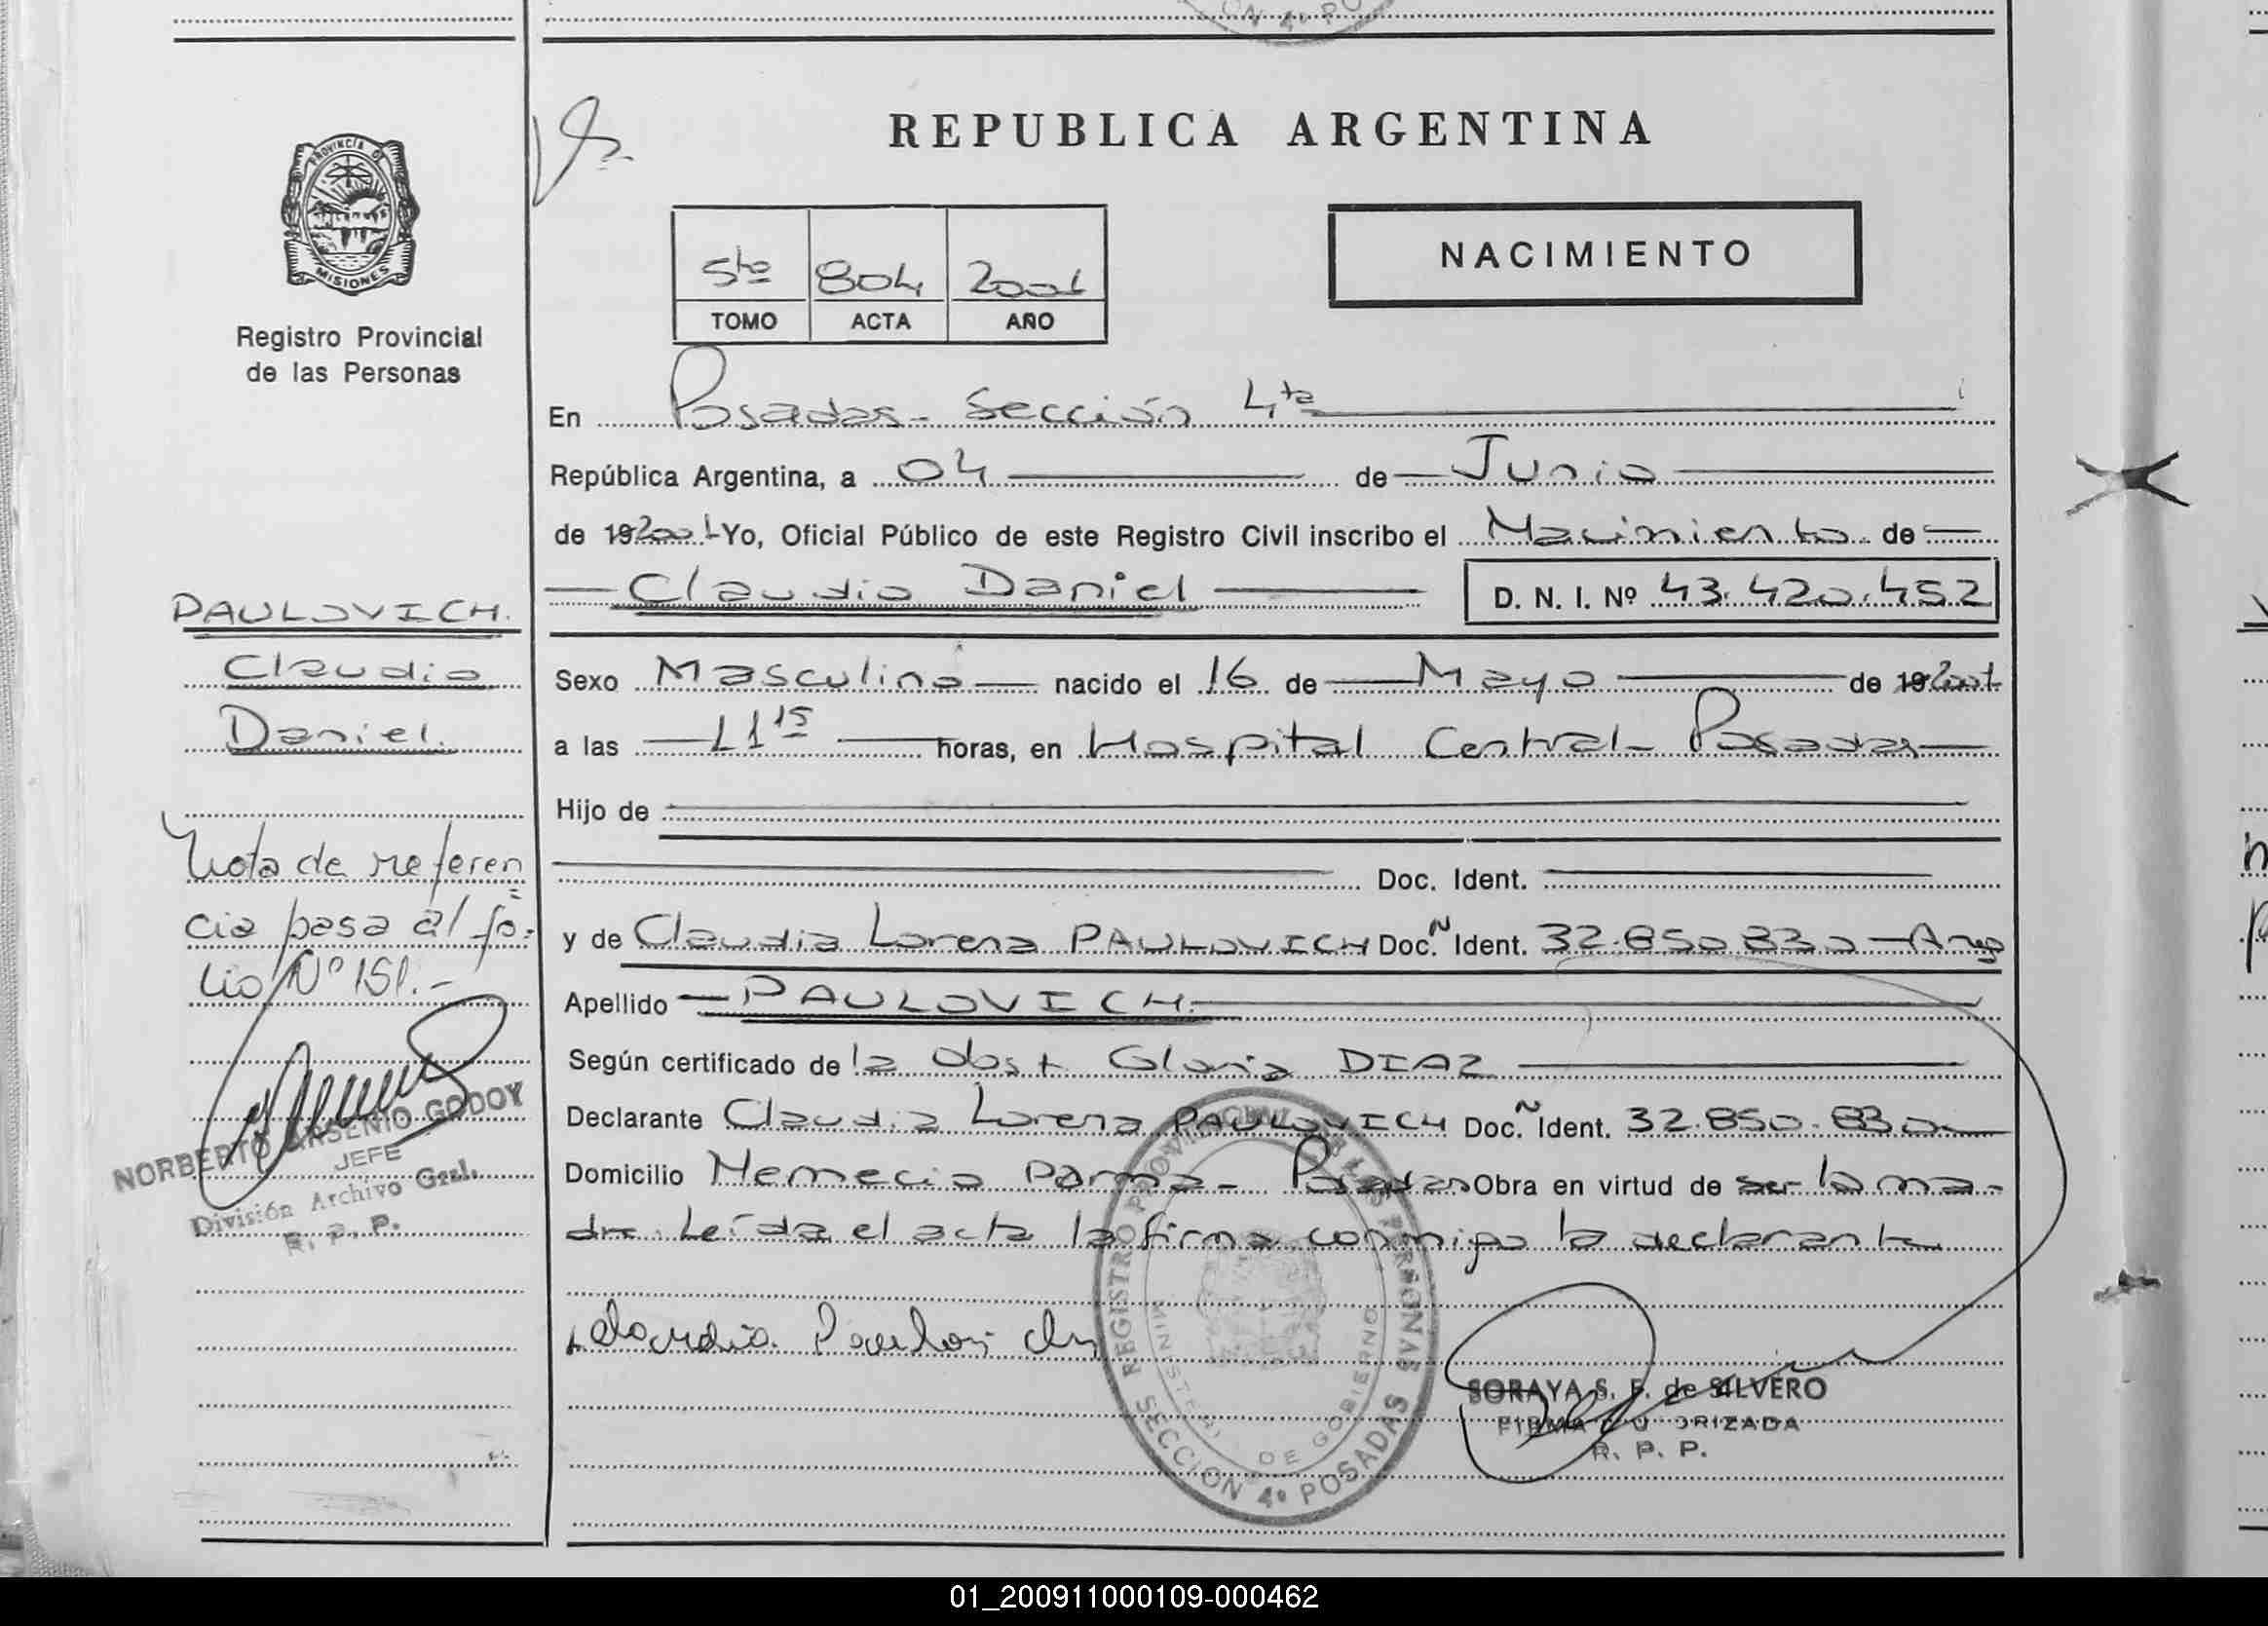 REPUBLICA ARGENTINA
NACIMIENTO
5to 804 2001
TOMO ACTA AÑO
PROVINCIA DE
MISIONES
Registro Provincial
de las Personas
PAULOVICH.
Claudio
Daniel.
Nota de referen
cia pasa al fo-
lio Nº 151.-
NORBERTO ARSENIO GODOY
JEFE
División Archivo Gral.
R. P. P.
En Posadas - Sección 4ta
República Argentina, a 04 de Junio
de 19 2001 Yo, Oficial Público de este Registro Civil inscribo el Nacimiento de
Claudio Daniel D. N. I. Nº 43.420.452
Sexo Masculino nacido el 16 de Mayo de 19 2001
a las 11 15 horas, en Hospital Central - Posadas
Hijo de
Doc. Ident.
y de Claudia Lorena PAULOVICH Doc. Ident. 32.850.830 - Arg
Apellido PAULOVICH.
Según certificado de la Obst Gloria DIAZ
Declarante Claudia Lorena PAULOVICH Doc. Ident. 32.850.830
Domicilio Nemecio Parma - Posadas Obra en virtud de ser la ma-
dre. Leída el acta la firma conmigo la declarante
Claudia Paulovich
REGISTRO PROVINCIAL DE LAS PERSONAS
MINISTERIO DE GOBIERNO
SECCION 4º POSADAS
SORAYA S. F. de SILVERO
FIRMA AUTORIZADA
R. P. P.
01_200911000109-000462